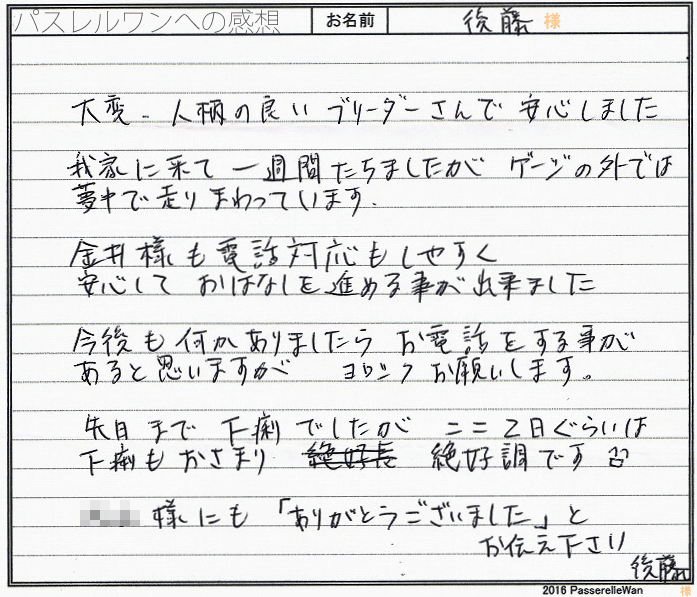 パスレルワンへの感想 お名前 後藤 様
大変 人柄の良い ブリーダーさんで 安心しました
我家に来て 一週間たちましたが ゲージの外では
夢中で走りまわっています.
金井様も電話対応もしやすく
安心して おはなしを進める事が出来ました
今後も何かありましたら お電話をする事が
あると思いますが ヨロシク お願いします。
先日まで 下痢でしたが ここ2日ぐらいは
下痢もおさまり 絶好調です
様にも「ありがとうございました」と
お伝え下さい
後藤 様
2016 PasserelleWan